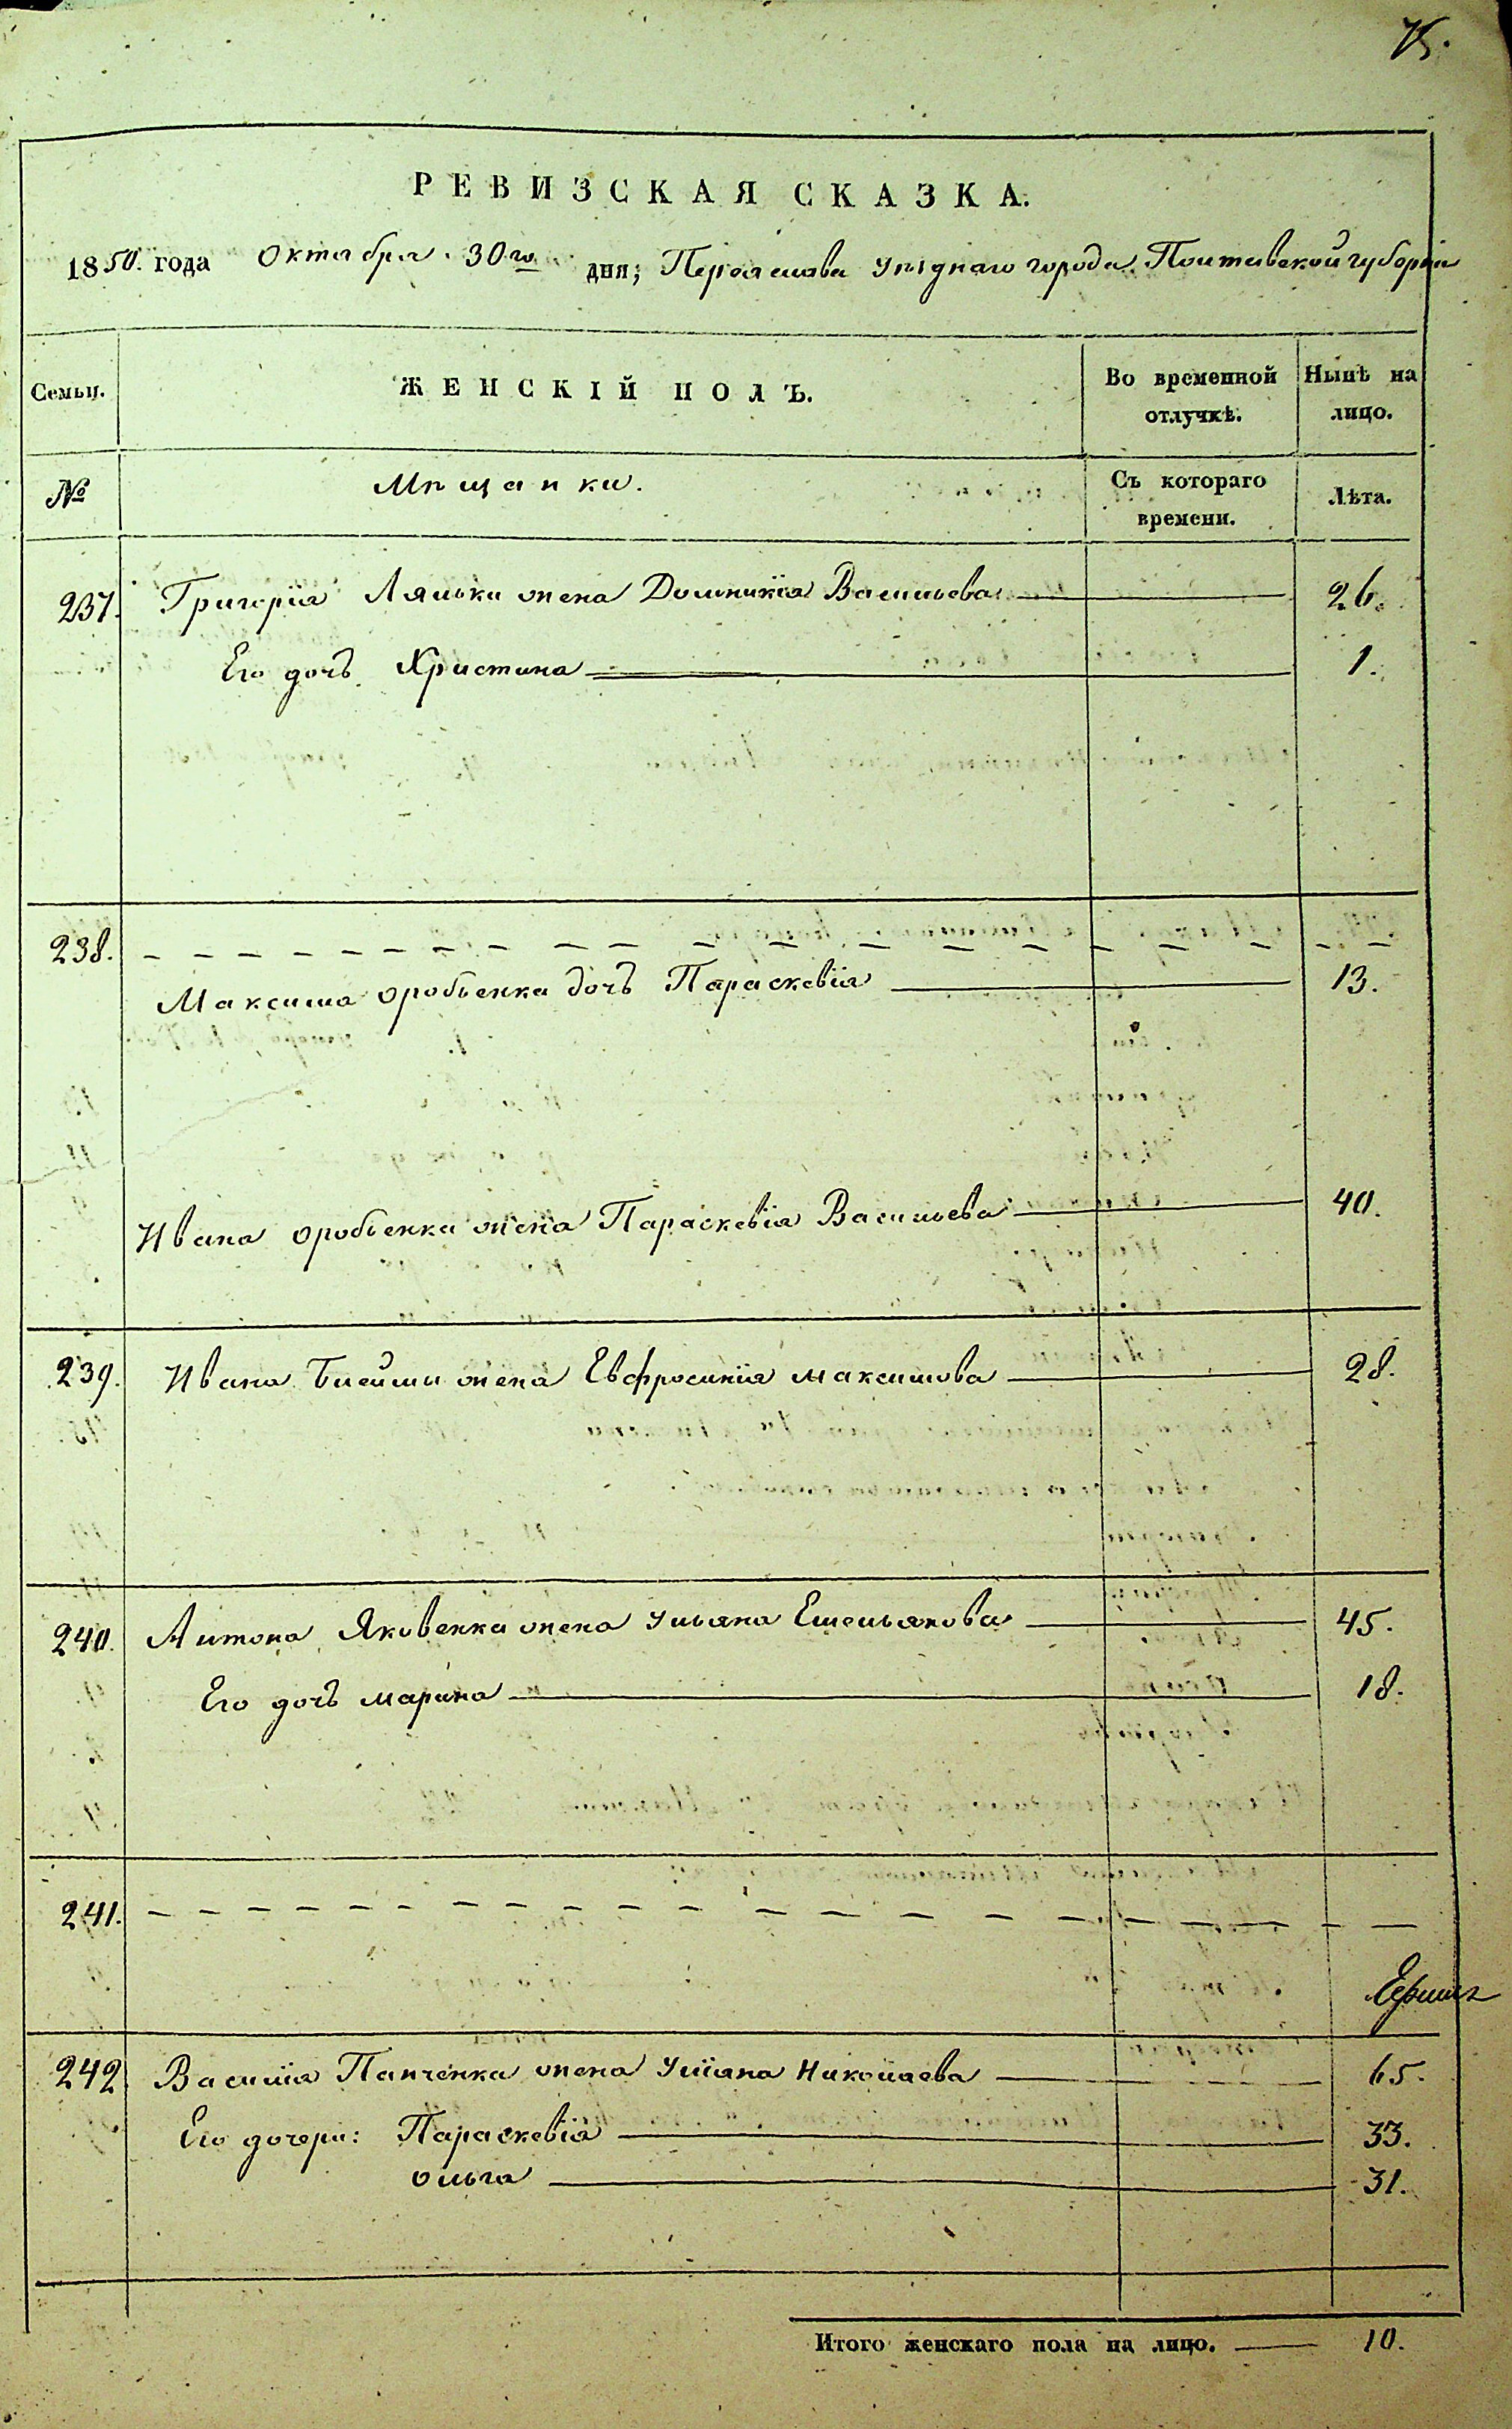 75.
РЕВИЗСКАЯ СКАЗКА.
1850. года Октября 30го дня; Переяслова уѣзднаго города Полтавской губерніи
Семьи. ЖЕНСКІЙ ПОЛЪ. Во временной отлучкѣ. Нынѣ на лицо.
№ Мѣщанки. Съ котораго времени. Лѣта.
237. Григорія Ляльки жена Домникія Васильева 26.
Его дочь Христина 1.
238.
Максима Оробьенка дочь Параскевія 13.
Ивана Оробьенка жена Параскевія Васильева 40.
239. Ивана жена Евфросинія Максимова 28.
240. Антона Яковенка жена Ульяна Емельянова 45.
Его дочь Марина 18.
241.
242. Василія Панченка жена Уліяна Николаева 65.
Его дочери: Параскевія 33.
Ольга 31.
Итого женскаго пола на лицо. 10.